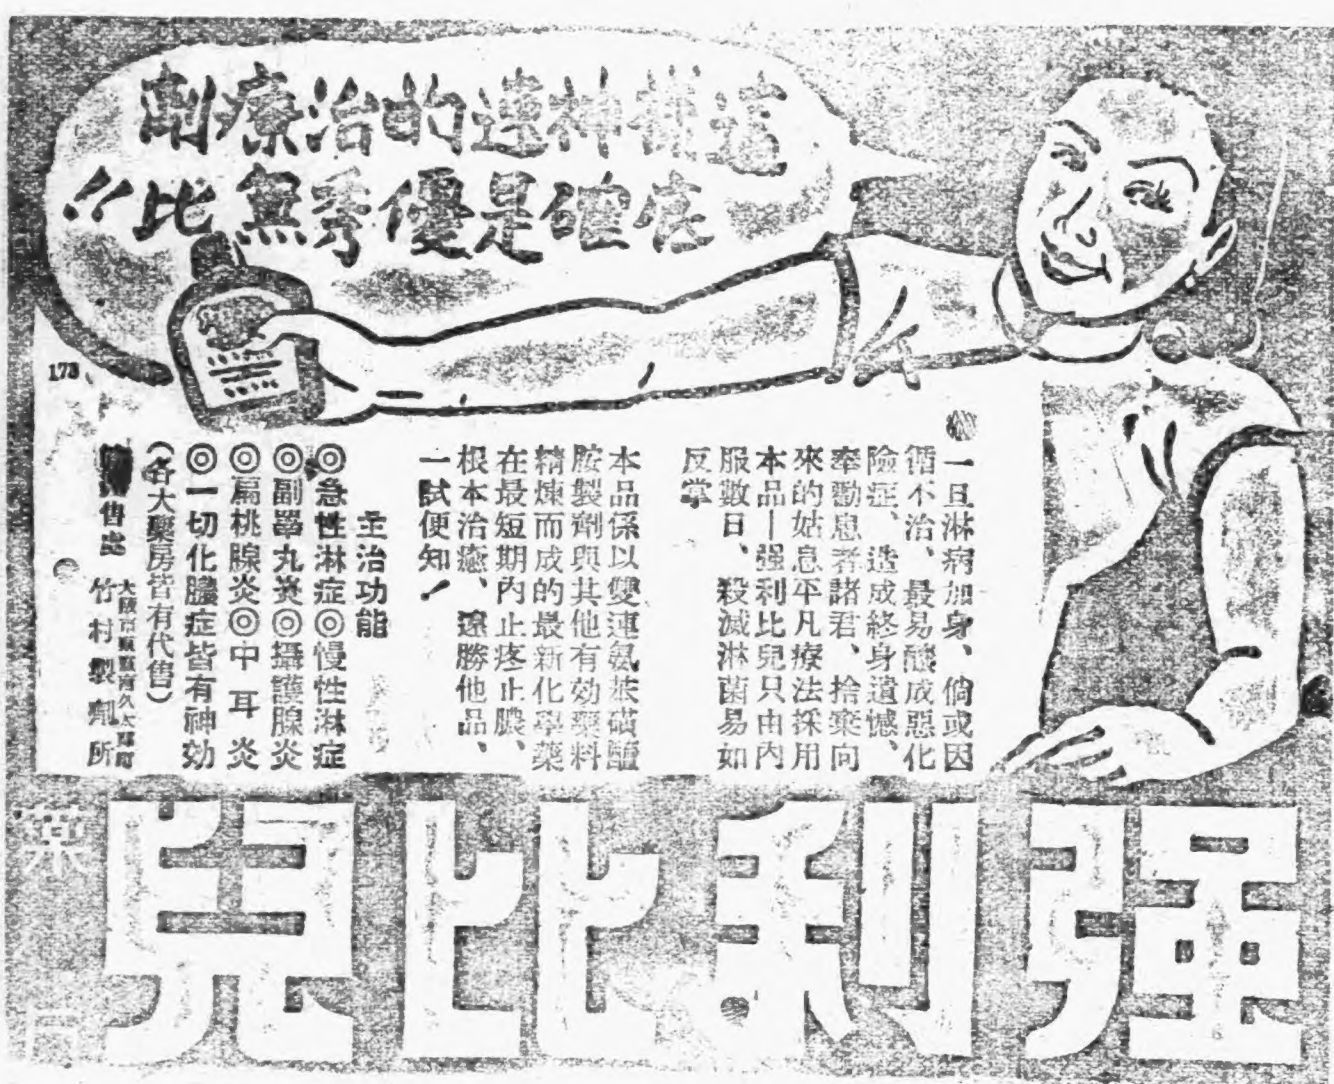 這樣神速的治療劑
底確是優秀無比!!
173
一旦淋病加身、倘或因
循不治、最易釀成惡化
險症、造成終身遺憾、
奉勸患者諸君、捨棄向
來的姑息平凡療法採用
本品—强利比兒只由內
服數日、殺滅淋菌易如
反掌
本品係以雙連氨苯磺醯
胺製劑與其他有効藥料
精煉而成的最新化學藥
在最短期內止疼止膿、
根本治癒、遠勝他品、
一試便知!
主治功能
◎急性淋症◎慢性淋症
◎副睪丸炎◎攝護腺炎
◎扁桃腺炎◎中耳炎
◎一切化膿症皆有神効
(各大藥房皆有代售)
售處
大阪市東區南久太郎町
竹村製劑所
强利比兒